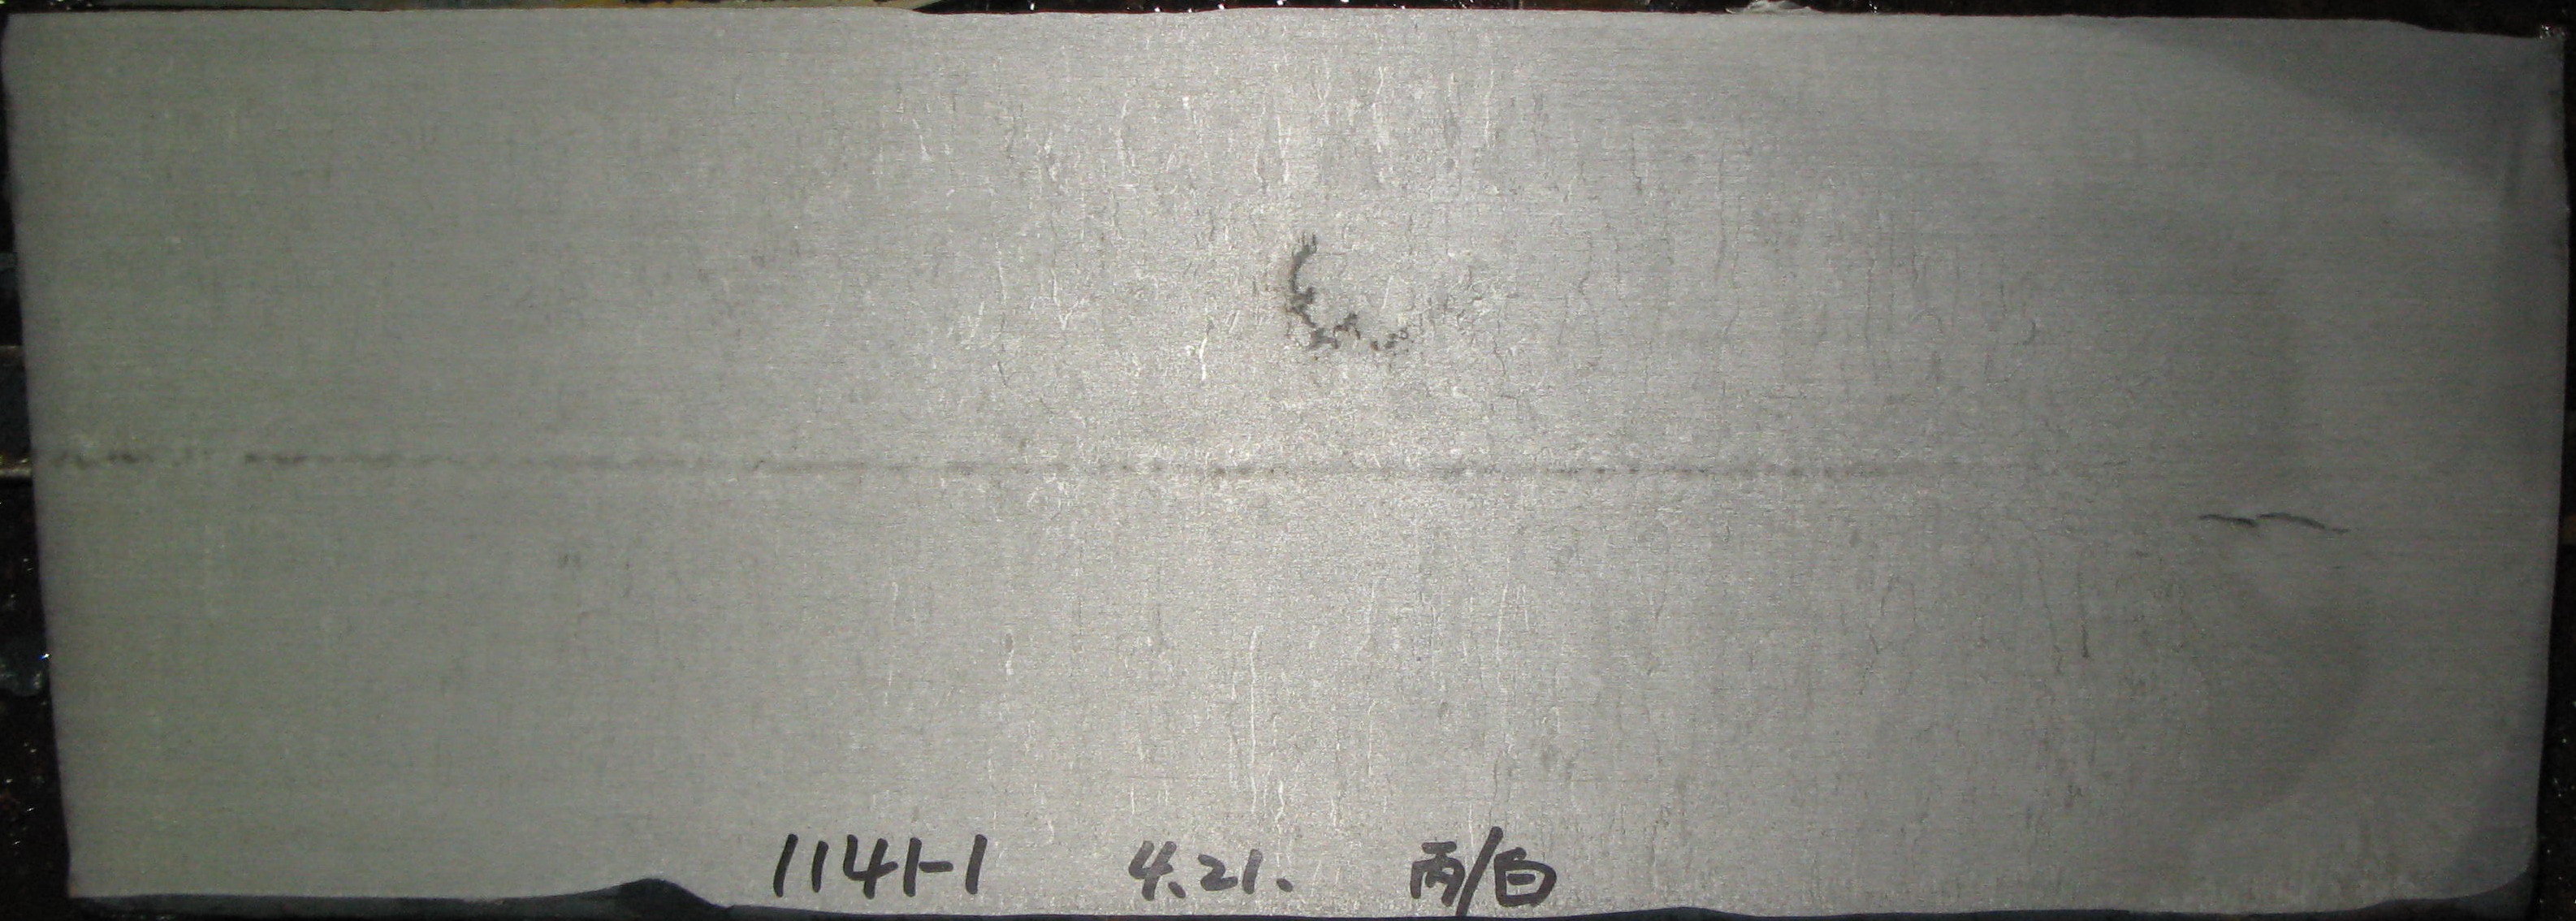 1141-1 4.21. 丙/白